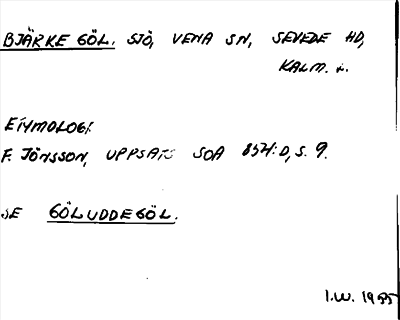 BJÄRKE GÖL. SJÖ, VENA SN, SEVEDE HD,
KALM. L.
ETYMOLOGI:
F. JÖNSSON, UPPSATS SOA 857:D, S. 9.
SE GÖLUDDEGÖL.
I.W. 1935